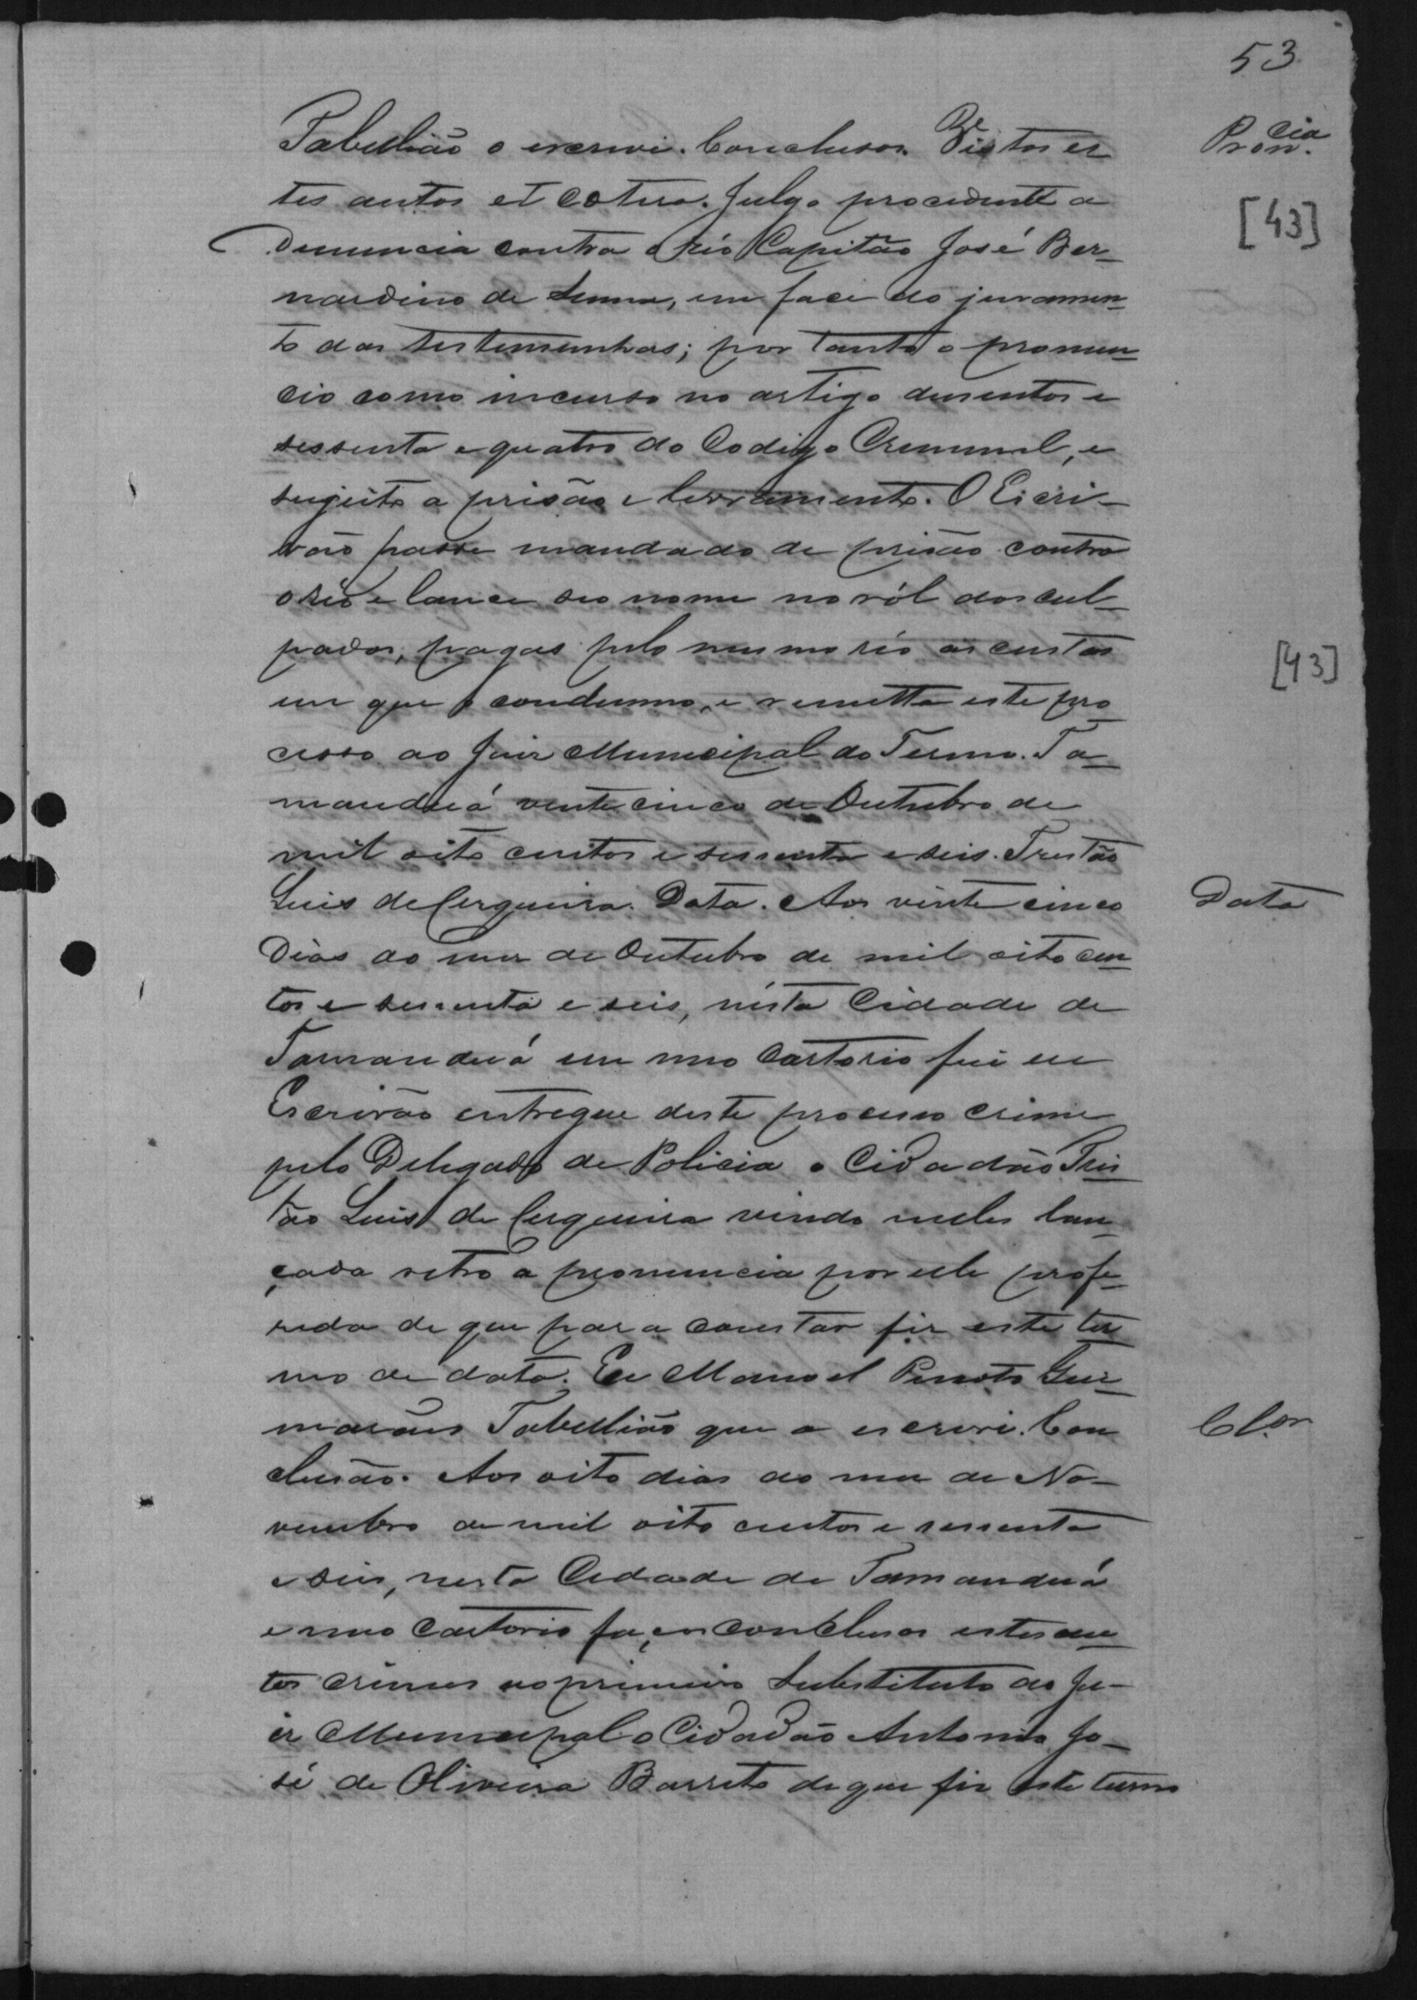 53
Tabellião o escrevi. Conclusos. Vistos es
Pron.cia
tes autos et cotera. Julgo procedente a
[43]
Denuncia contra o réo Capitão José Ber-
nardino de Senna, em face do juramen-
to das testemunhas; por tanto o pronun-
cio como incurso no artigo dusentos e
sessenta e quatro do Codigo Creminal, e
sugeito a prisão e livramento. O Escri-
vão passe mandado de prisão contra
o réo e lance seo nome no ról dos cul-
pados, pagas pelo mesmo réo as custas
[43]
em que o condemno, e remetta este pro-
cesso ao Juiz Municipal do Termo. Ta-
manduá vinte cinco de Outubro de
mil oito centos e sessenta e seis. Tristão
Luis de Cerqueira. Data. Aos vinte cinco
Data
Dias do mez de Outubro de mil oito cen-
tos e sessenta e seis, nésta Cidade de
Tamanduá em meo Cartorio fui eu
Escrivão entregue deste processo crime
pelo Delegado de Policia o Cidadão Tris-
tão Luis de Cerqueira vindo nelles lan-
çada retro a pronuncia por elle profe-
rida de que para constar fiz este ter-
mo de data. Eu Manoel Peixoto Gui-
marães Tabellião que o escrevi. Con
Cl.on
clusão. Aos oito dias do mez de No-
vembro de mil oito centos e sessenta
e seis, nesta Cidade de Tamanduá
e meo Cartorio faço conclusos estes au-
tos crimes ao primeiro Substituto do Ju-
iz Municipal o Cidadão Antonio Jo-
sé de Oliveira Barreto de que fiz este termo